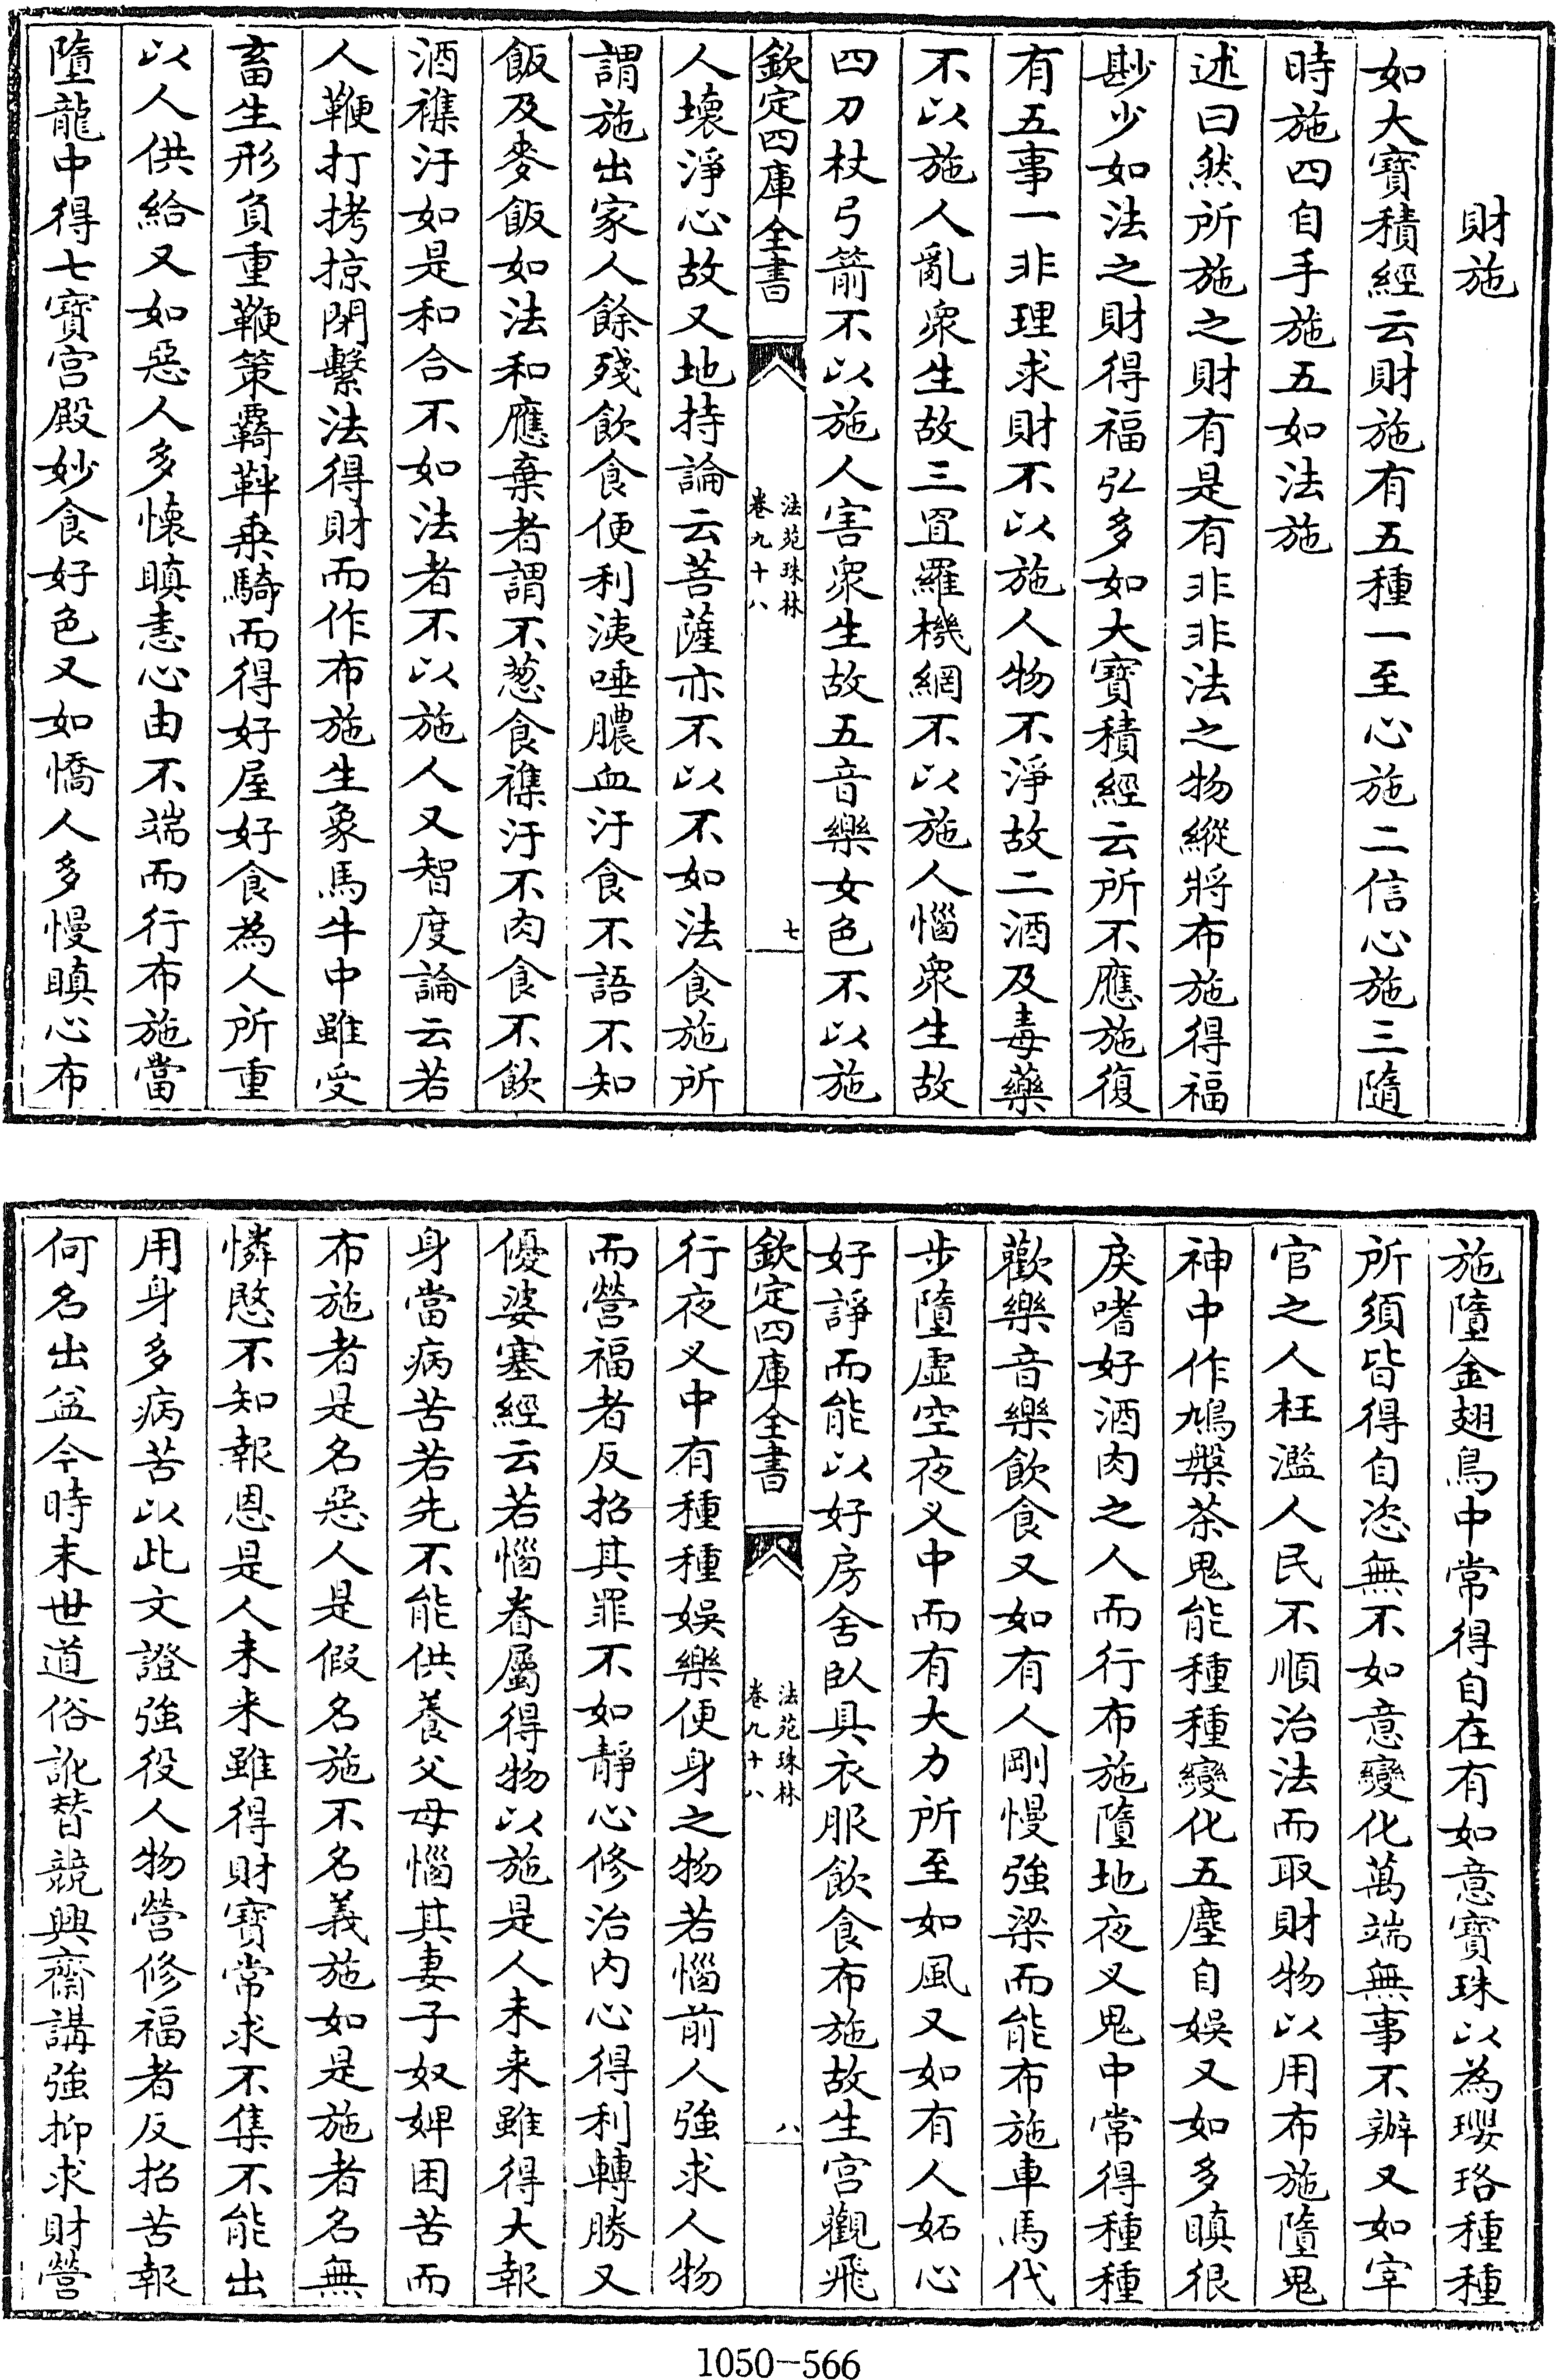 財施
如大寶積經云財施有五種一至心施二信心施三隨
時施四自手施五如法施
述曰然所施之財有是有非非法之物縱將布施得福
尠少如法之財得福弘多如大寶積經云所不應施復
有五事一非理求財不以施人物不淨故二酒及毒藥
不以施人亂衆生故三罝羅機網不以施人惱衆生故
四刀杖弓箭不以施人害衆生故五音樂女色不以施
欽定四庫全書
法苑珠林
卷九十八
七
人壞淨心故又地持論云菩薩亦不以不如法食施所
謂施出家人餘殘飲食便利洟唾膿血汙食不語不知
飯及麥飯如法和應棄者謂不葱食襍汙不肉食不飲
酒襍汙如是和合不如法者不以施人又智度論云若
人鞭打拷掠閉繫法得財而作布施生象馬牛中雖受
畜生形負重鞭策羈靽乗騎而得好屋好食為人所重
以人供給又如惡人多懷瞋恚心由不端而行布施當
墮龍中得七寶宮殿妙食好色又如憍人多慢瞋心布
施墮金翅鳥中常得自在有如意寶珠以為瓔珞種種
所須皆得自恣無不如意變化萬端無事不辦又如宰
官之人枉濫人民不順治法而取財物以用布施墮鬼
神中作鳩槃茶鬼能種種變化五塵自娛又如多瞋很
戾嗜好酒肉之人而行布施墮地夜叉鬼中常得種種
歡樂音樂飲食又如有人剛慢強梁而能布施車馬代
步墮虛空夜叉中而有大力所至如風又如有人妬心
好諍而能以好房舍臥具衣服飲食布施故生宮觀飛
欽定四庫全書
法苑珠林
卷九十八
八
行夜叉中有種種娛樂便身之物若惱前人強求人物
而營福者反招其罪不如靜心修治內心得利轉勝又
優婆塞經云若惱眷屬得物以施是人未来雖得大報
身當病苦若先不能供養父母惱其妻子奴婢困苦而
布施者是名惡人是假名施不名義施如是施者名無
憐愍不知報恩是人未来雖得財寶常求不集不能出
用身多病苦以此文證強役人物營修福者反招苦報
何名出益今時末世道俗訛替競興齋講強抑求財營
1050-566